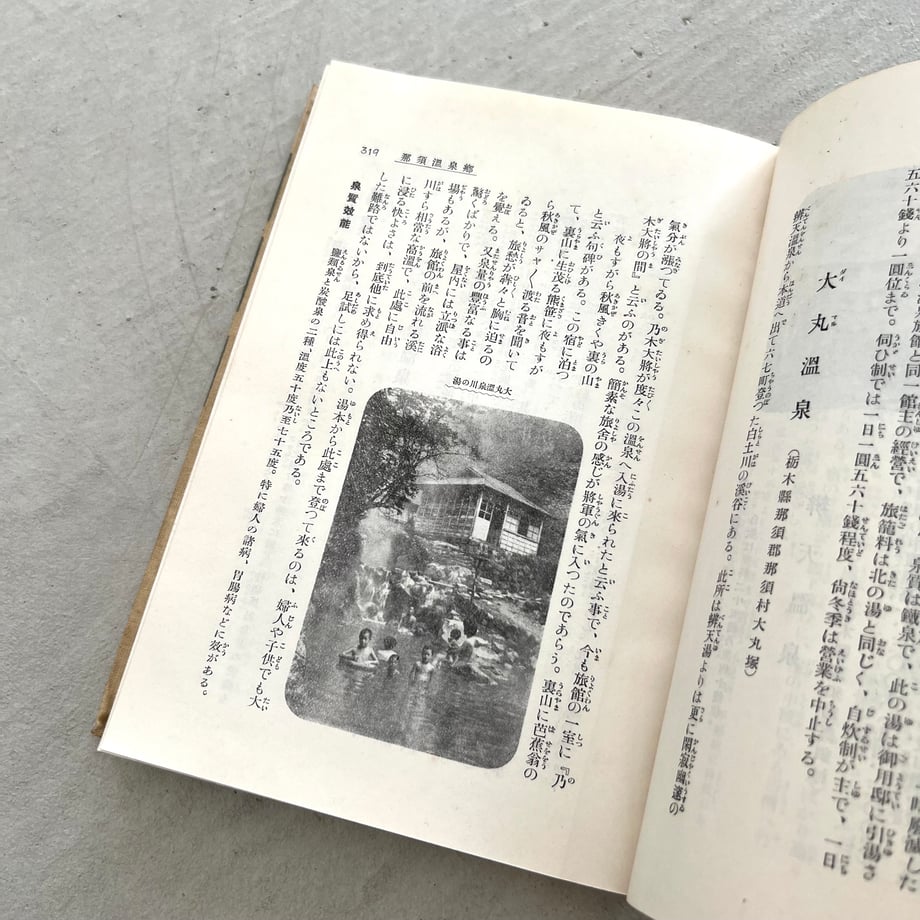 五六十錢より一圓位まで。伺ひ制では一日一圓五六十錢程度、尙冬季は營業を中止する。
旅館と同一館主の經營で、旅籠料は北の湯と同じく、自炊制が主で、一日
泉質は鐵泉で、此の湯は御用邸に引湯さ
大丸溫泉（栃木縣那須郡那須村大丸塚）
辨天溫泉から本道へ出て六七町登つた白土川の溪谷にある。此所は辨天湯よりは更に閑寂幽邃の
氣分が漲つてゐる。乃木大將が度々この溫泉へ入湯に來られたと云ふ事で、今も旅館の一室に『乃
木大將の間』と云ふのがある。簡素な旅舍の感じが將軍の氣に入つたのであらう。裏山に芭蕉翁の
夜もすがら秋風きくや裏の山
と云ふ句碑がある。この宿に泊つ
て、裏山に生茂る熊笹に夜もすが
ら秋風のサヤ〱渡る音を聞いて
ゐると、旅愁が犇々と胸に迫るの
を覺える。又泉量の豐富なる事は
驚くばかりで、屋内には立派な浴
場もあるが、旅館の前を流れる溪
川すら相當な高溫で、此處に自由
に浸る快よさは、到底他に求め得られない。湯本から此處まで登つて來るのは、婦人や子供でも大
した難路ではないから、足試しには此上もないところである。
泉質効能　鹽類泉と炭酸泉の二種、溫度五十度乃至七十五度。特に婦人の諸病、胃腸病などに效がある。
大丸溫泉川の湯
那須溫泉鄕
319